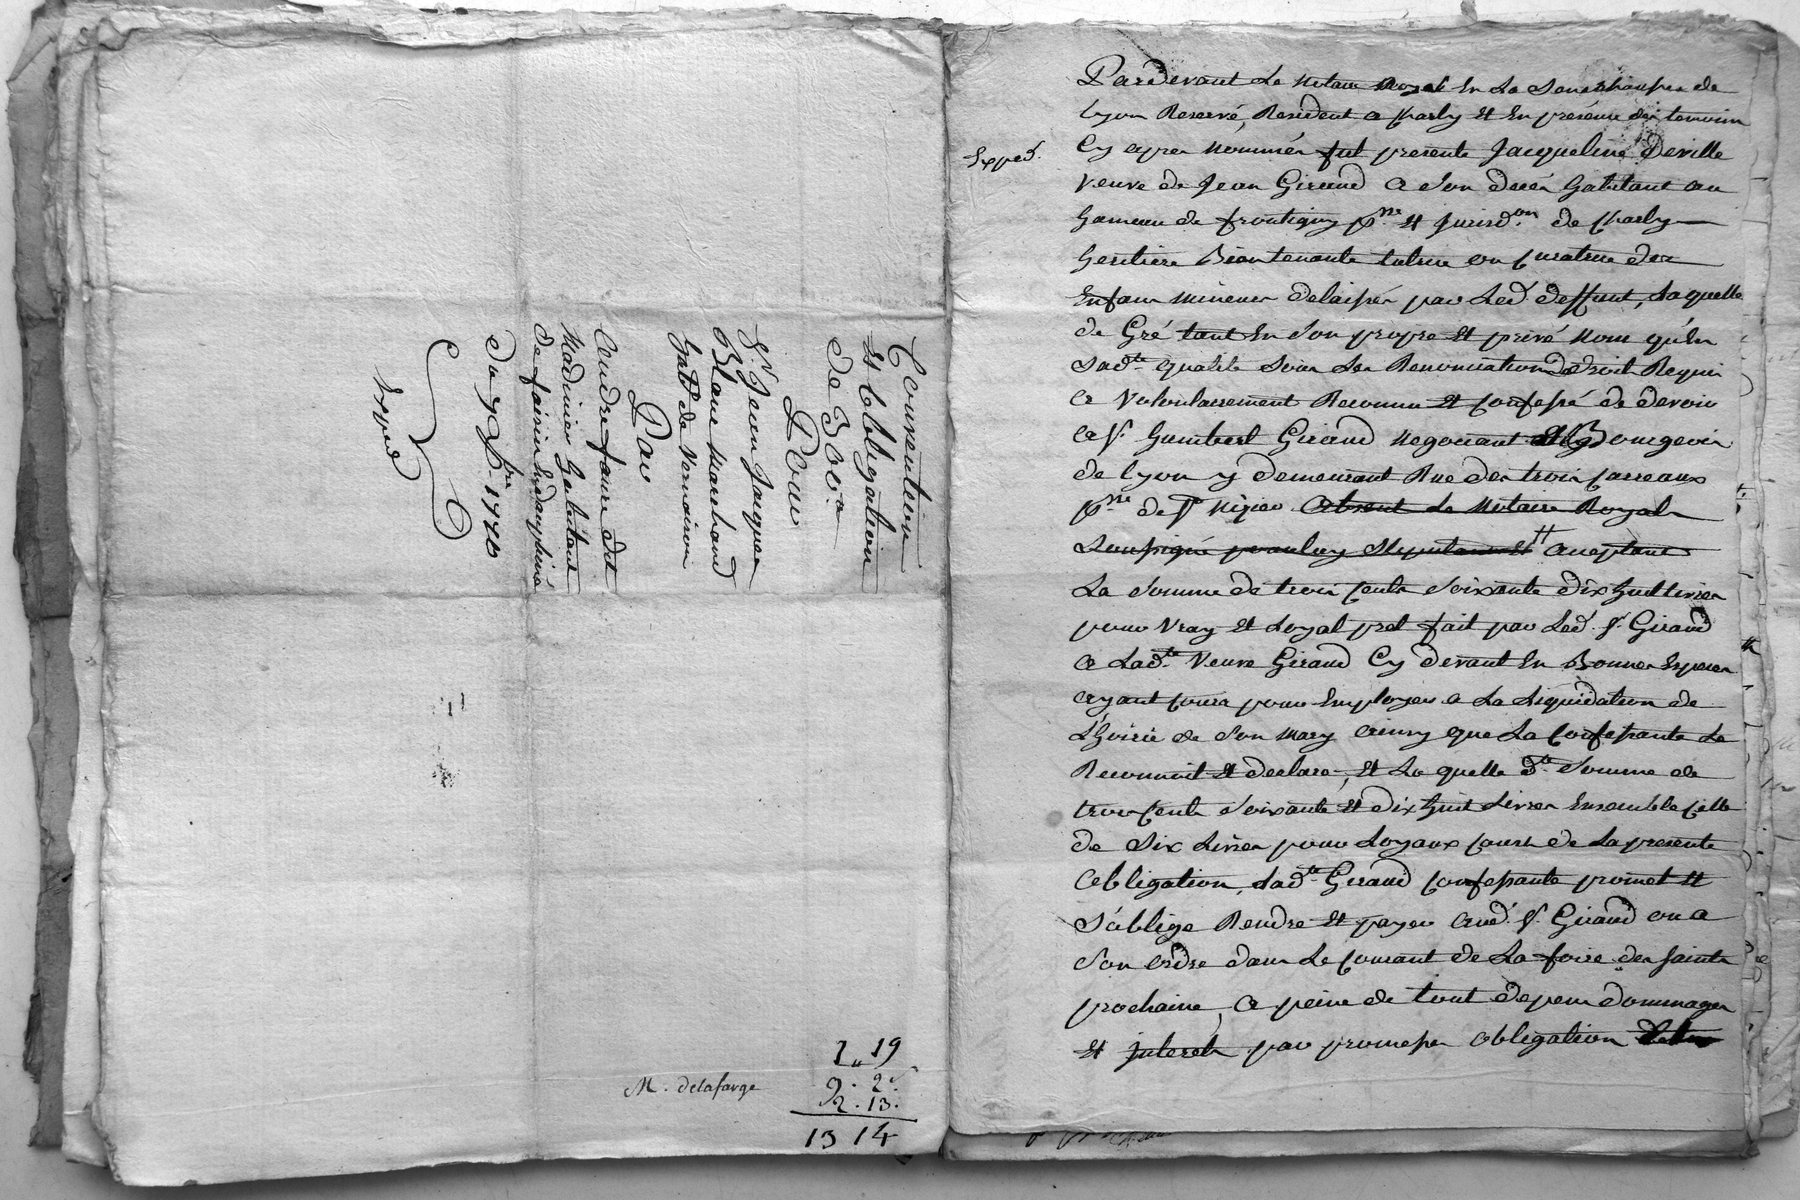 Convention
et obligation
de 300ᵗᵗ
Pour
Sʳ Jean Jacques
Blanc Marchand
habᵗ de Vernaison
Par
André faure dit
Madinier habitant
de faisin en dauphiné
Du 9 9bʳᵉ 1720
Expéd
1 19
9. 2
2. 13.
13 14
M. delafarge
Expéd.
Pardevant Le Notaire Royal En La Senechaussée de
Lyon Reservé, Resident a Charly Et En présence des temoins
Cy apres Nommés fut presente Jacqueline Deville
veuve de Jean Giraud a Son decés habitant au
hameau de frontigny pᵐᵉ Et Jurisdᵒⁿ de Charly
heritiere Biantenante tutrice ou Curatrice des
Enfans mineurs delaissés par Led. deffunt, Laquelle
de Gré tant En Son propre Et privé Nom qu'En
Sadᵗᵉ qualité Sous Les Renonciations de droit Requis
a Volontairement Reconnu Et Confessé de devoir
a Sʳ humbert Giraud Negociant Et Bourgeois
de Lyon y demeurant Rue des trois Carreaux
psᵉ de Sᵗ Nizier absent Le Notaire Royal
Soussigné pour luy Stipulant Et acceptant
La Somme de trois Cents Soixante dix huit Livres
pour Vray Et Loyal pret fait par Led. Sʳ Giraud
a Ladᵗᵉ Veuve Giraud Cy devant En Bonnes Especes
ayant Cours pour Employer a La Liquidation de
L'hoirie de Son mary ainsy que La Confessante Le
Reconnoit Et declare, Et La quelle dᵗᵉ Somme de
trois Cents Soixante Et dix huit Livres Ensemble Celle
de Six Livres pour Loyaux Couts de La presente
obligation, Ladᵗᵉ Giraud Confessante promet Et
S'oblige Rendre Et payer aud. Sʳ Giraud ou a
Son ordre dans Le Courant de La foire des Saints
prochaine, a peine de tout depens dommages
Et Interets par promesse obligation